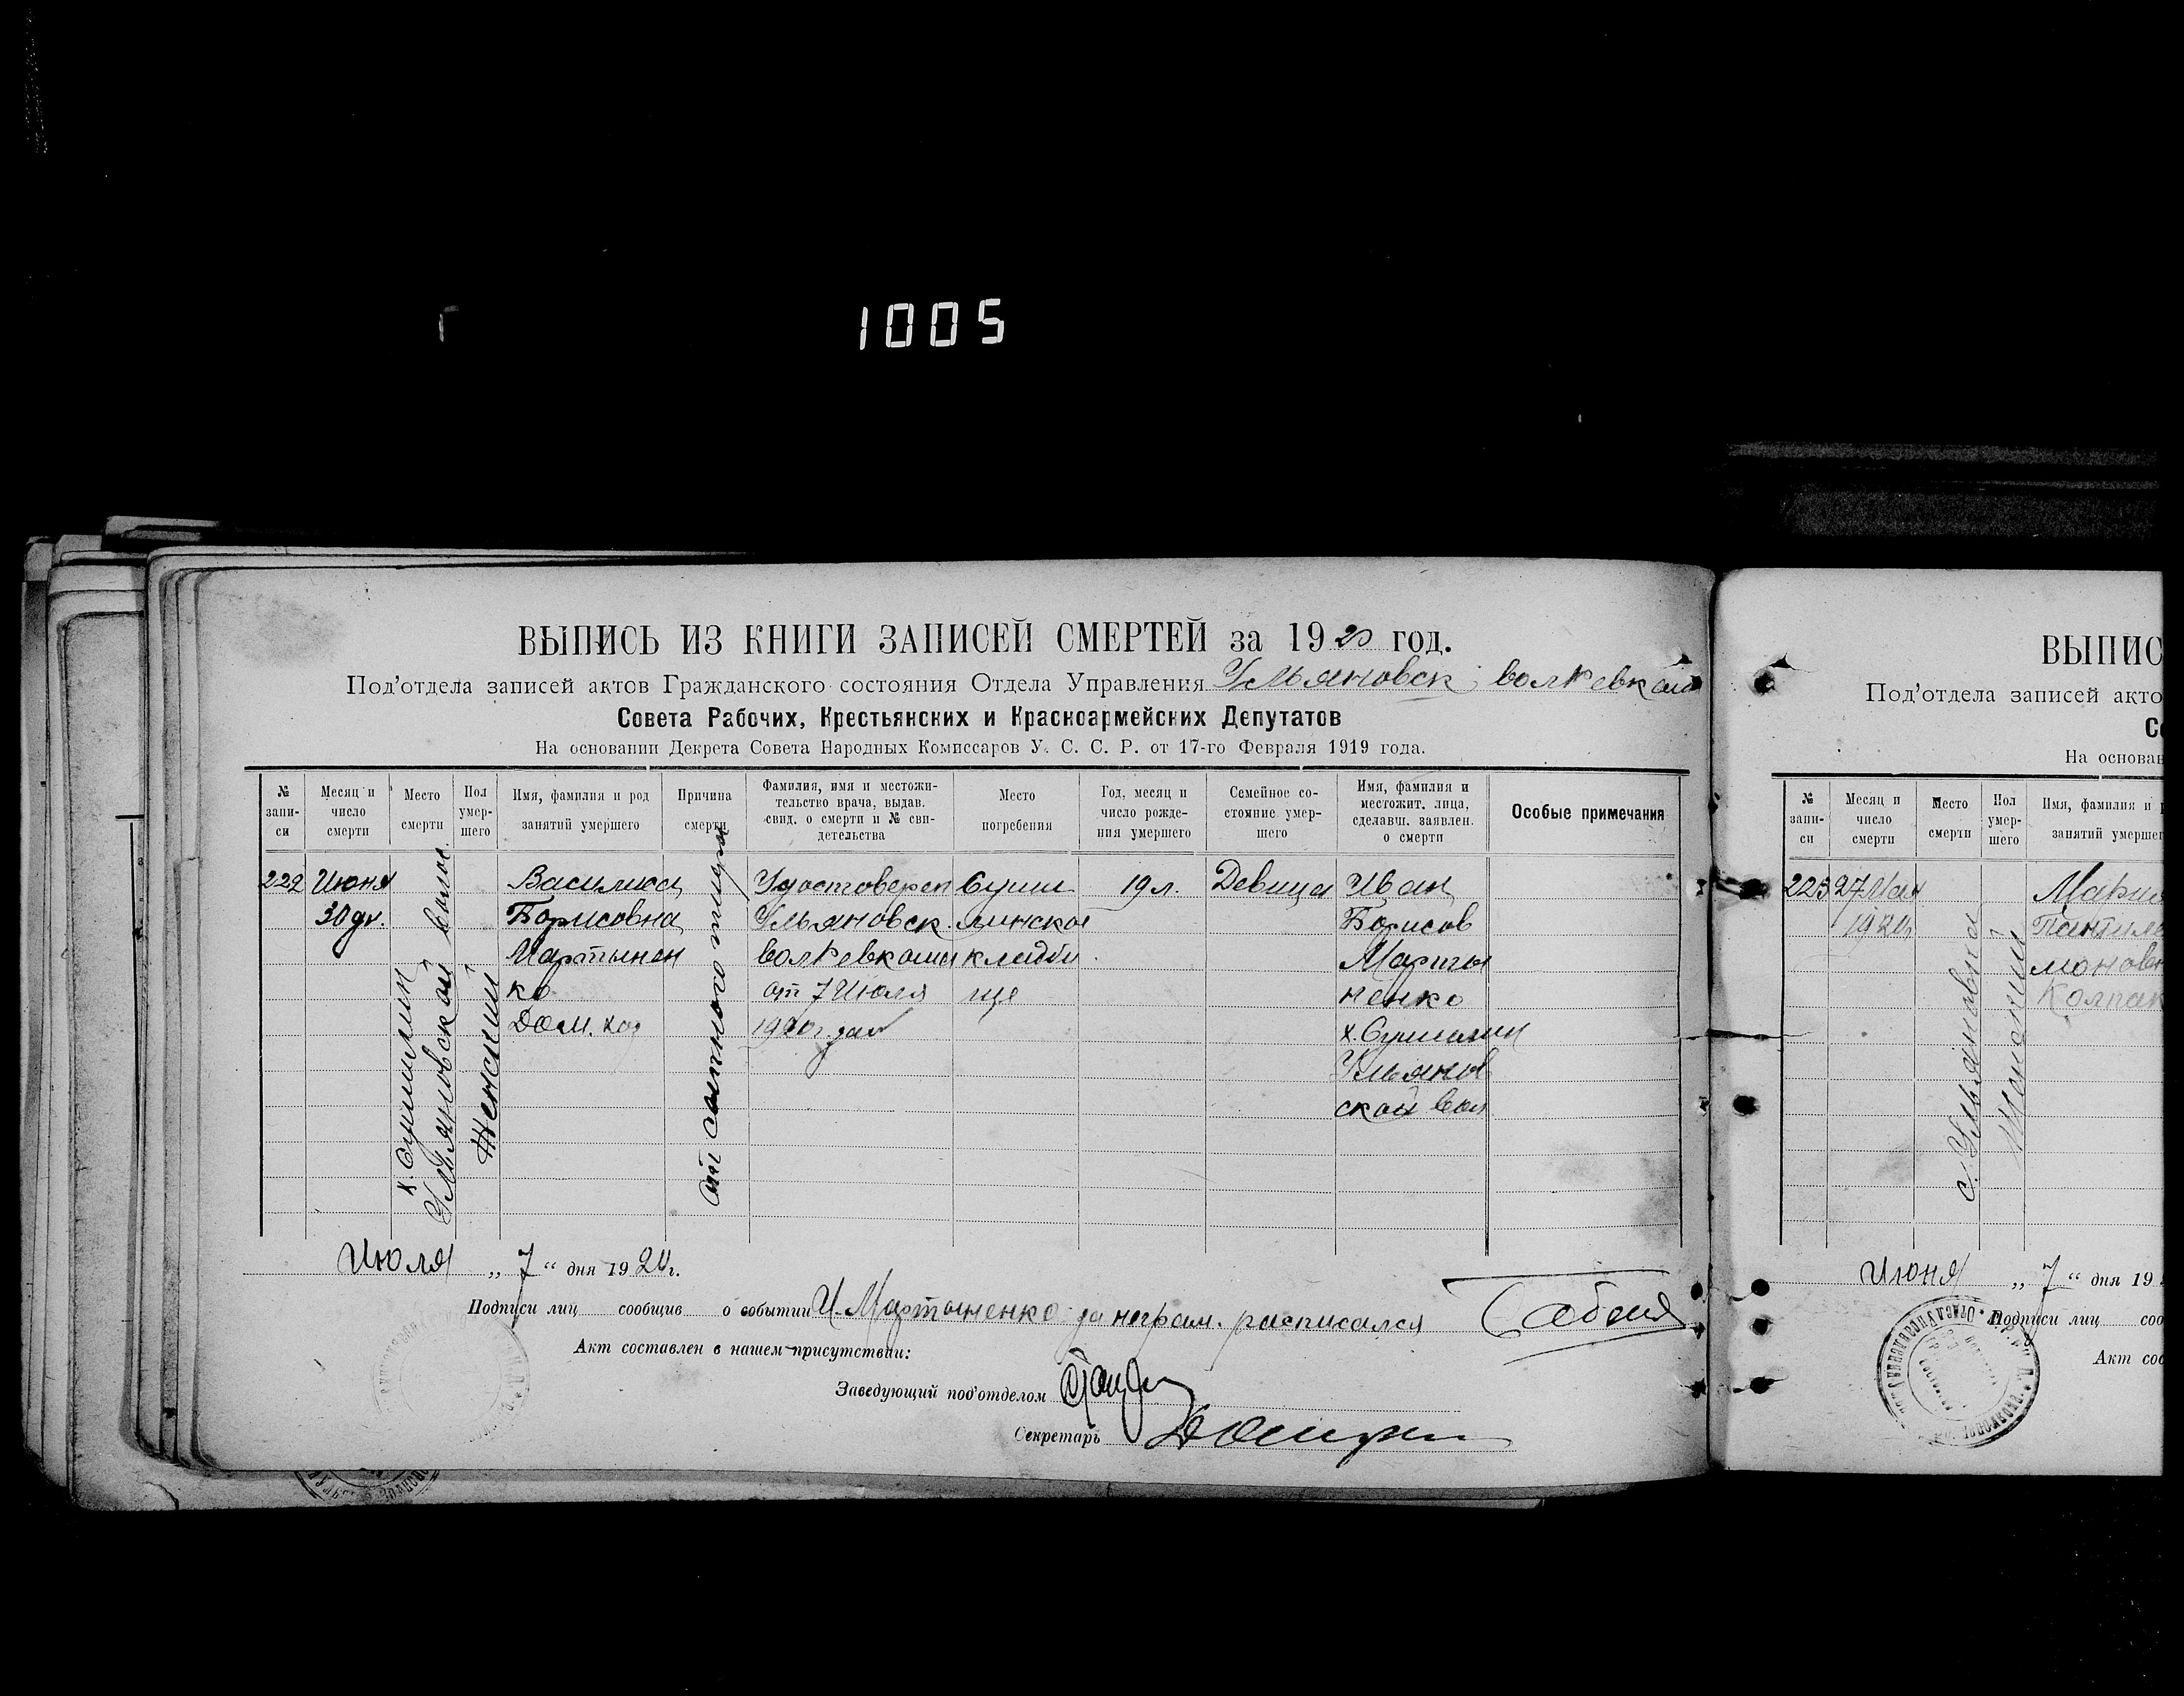 1005
ВЫПИСЬ ИЗ КНИГИ ЗАПИСЕЙ СМЕРТЕЙ за 1920 год.
Под'отдела записей актов Гражданского состояния Отдела Управления Ульяновск. волревком
Совета Рабочих, Крестьянских и Красноармейских Депутатов
На основании Декрета Совета Народных Комиссаров У. С. С. Р. от 17-го Февраля 1919 года.
№ запи-
си
Месяц и
число
смерти
Место
смерти
Пол
умер-
шего
Имя, фамилия и род
занятий умершего
Причина
смерти
Фамилия, имя и местожи-
тельство врача, выдав.
свид. о смерти и № сви-
детельства
Место
погребения
Год, месяц и
число рожде-
ния умершего
Семейное со-
стояние умер-
шего
Имя, фамилия и
местожит. лица,
сделавш. заявлен.
о смерти
Особые примечания
222
Июня
30 дн.
х. Сушилин
Ульяновской волос.
Женский
Василиса
Борисовна
Мартынен
ко
Дом. хоз
от сыпного тифа
Удостоверен
Ульяновск.
волревкома
от 7 Июля
1920 г.
Суши
линское
кладби
ще
19 л.
Девица
Иван
Борисов
Марты
ненко
х. Сушилин
Ульянов
ской вол
Июля „ 7 “ дня 1920 г.
Подписи лиц сообщив о событии И. Мартыненко за неграм. расписался
Акт составлен в нашем присутствии:
Заведующий под'отделом
Секретарь
ВЫПИС
Под'отдела записей акто
Со
На основан
№ запи-
си
Месяц и
число
смерти
Место
смерти
Пол
умер-
шего
Имя, фамилия и р
занятий умершег
223
27 Мая
1920 г.
с. Ульяновка
Женский
Мария
Пантиле
моновн
Колпак
Июня „ 7 “ дня 19
Подписи лиц соо
Акт сос